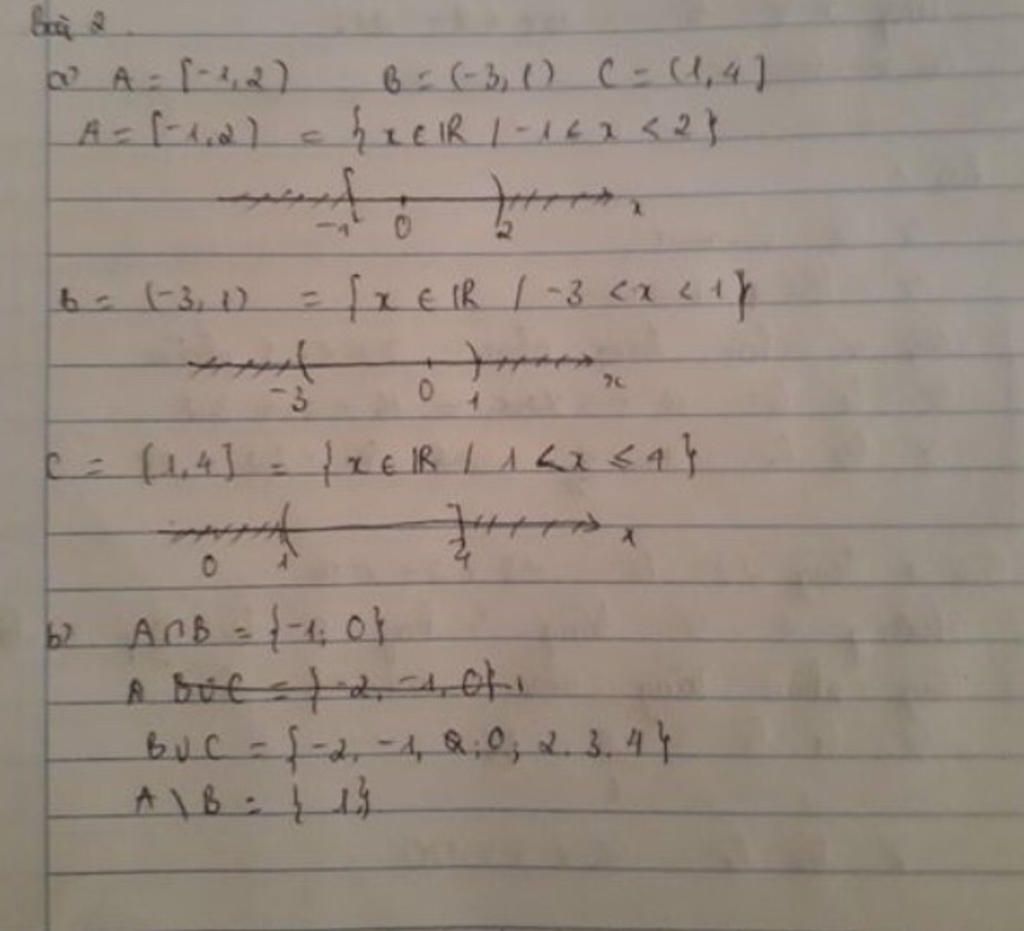 Bài 2.
a) A = [-1, 2) B = (-3, 1) C = (1, 4]
A = [-1, 2) = {x ∈ ℝ / -1 < x < 2}
-1 0 2 x
B = (-3, 1) = {x ∈ ℝ / -3 < x < 1}
-3 0 1 x
C = (1, 4] = {x ∈ ℝ / 1 < x ≤ 4}
0 1 4 x
b) A∩B = {-1; 0}
A B∪C = {-2, -1, 0, 1
B∪C = {-2, -1, 0; 2. 3. 4}
A \ B = {1}